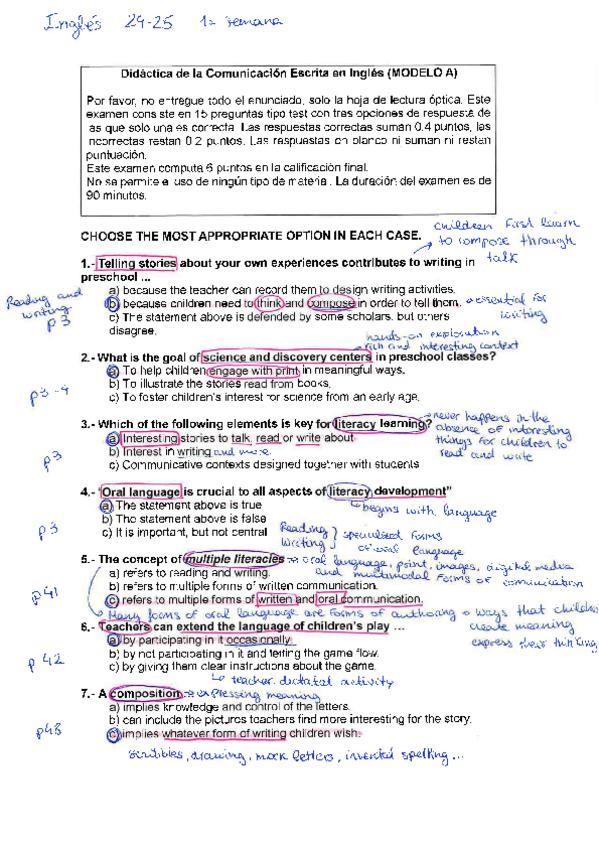 Inglés 24-25 1ª semana
Didáctica de la Comunicación Escrita en Inglés (MODELO A)
Por favor, no entregue todo el enunciado, solo la hoja de lectura óptica. Este
examen consiste en 15 preguntas tipo test con tres opciones de respuesta de
las que solo una es correcta. Las respuestas correctas suman 0.4 puntos, las
incorrectas restan 0.2 puntos. Las respuestas en blanco ni suman ni restan
puntuación.
Este examen computa 6 puntos en la calificación final.
No se permite el uso de ningún tipo de material. La duración del examen es de
90 minutos.
children first learn
to compose through
talk
CHOOSE THE MOST APPROPRIATE OPTION IN EACH CASE.
1.- Telling stories about your own experiences contributes to writing in
preschool ...
a) because the teacher can record them to design writing activities.
Reading and
writing
p3
b) because children need to think and compose in order to tell them.
essential for
writing
c) The statement above is defended by some scholars, but others
disagree.
hands-on exploration
rich and interesting context
2.- What is the goal of science and discovery centers in preschool classes?
a) To help children engage with print in meaningful ways.
p3-4
b) To illustrate the stories read from books.
c) To foster children's interest for science from an early age.
3.- Which of the following elements is key for literacy learning?
never happens in the
absence of interesting
things for children to
read and write
a) Interesting stories to talk, read or write about
b) Interest in writing and more
p3
c) Communicative contexts designed together with students
4.- "Oral language is crucial to all aspects of literacy development"
begins with language
a) The statement above is true
b) The statement above is false
p3
c) It is important, but not central
Reading
Writing } specialised forms
of oral language
5.- The concept of multiple literacies
oral language, print, images, digital media
and multimodal forms of comunication
a) refers to reading and writing.
b) refers to multiple forms of written communication.
p41
c) refers to multiple forms of written and oral communication.
Many forms of oral language are forms of authoring ways that children
create meaning
express their thinking
6.- Teachers can extend the language of children's play ...
a) by participating in it occasionally
b) by not participating in it and letting the game flow.
p42
c) by giving them clear instructions about the game.
teacher dictated activity
7.- A composition
expressing meaning
a) implies knowledge and control of the letters.
b) can include the pictures teachers find more interesting for the story.
p48
c) implies whatever form of writing children wish.
scribbles, drawing, mock letters, invented spelling...